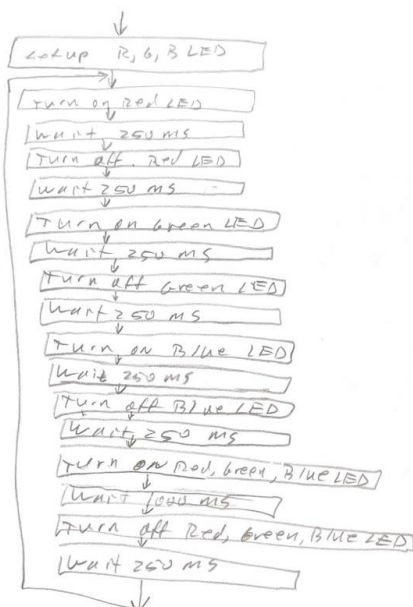 setup R, G, B LED
Turn on Red LED
Wait 250 ms
Turn off Red LED
Wait 250 ms
Turn on Green LED
Wait 250 ms
Turn off Green LED
Wait 250 ms
Turn on Blue LED
Wait 250 ms
Turn off Blue LED
Wait 250 ms
Turn on Red, Green, Blue LED
Wait 1000 ms
Turn off Red, Green, Blue LED
Wait 250 ms